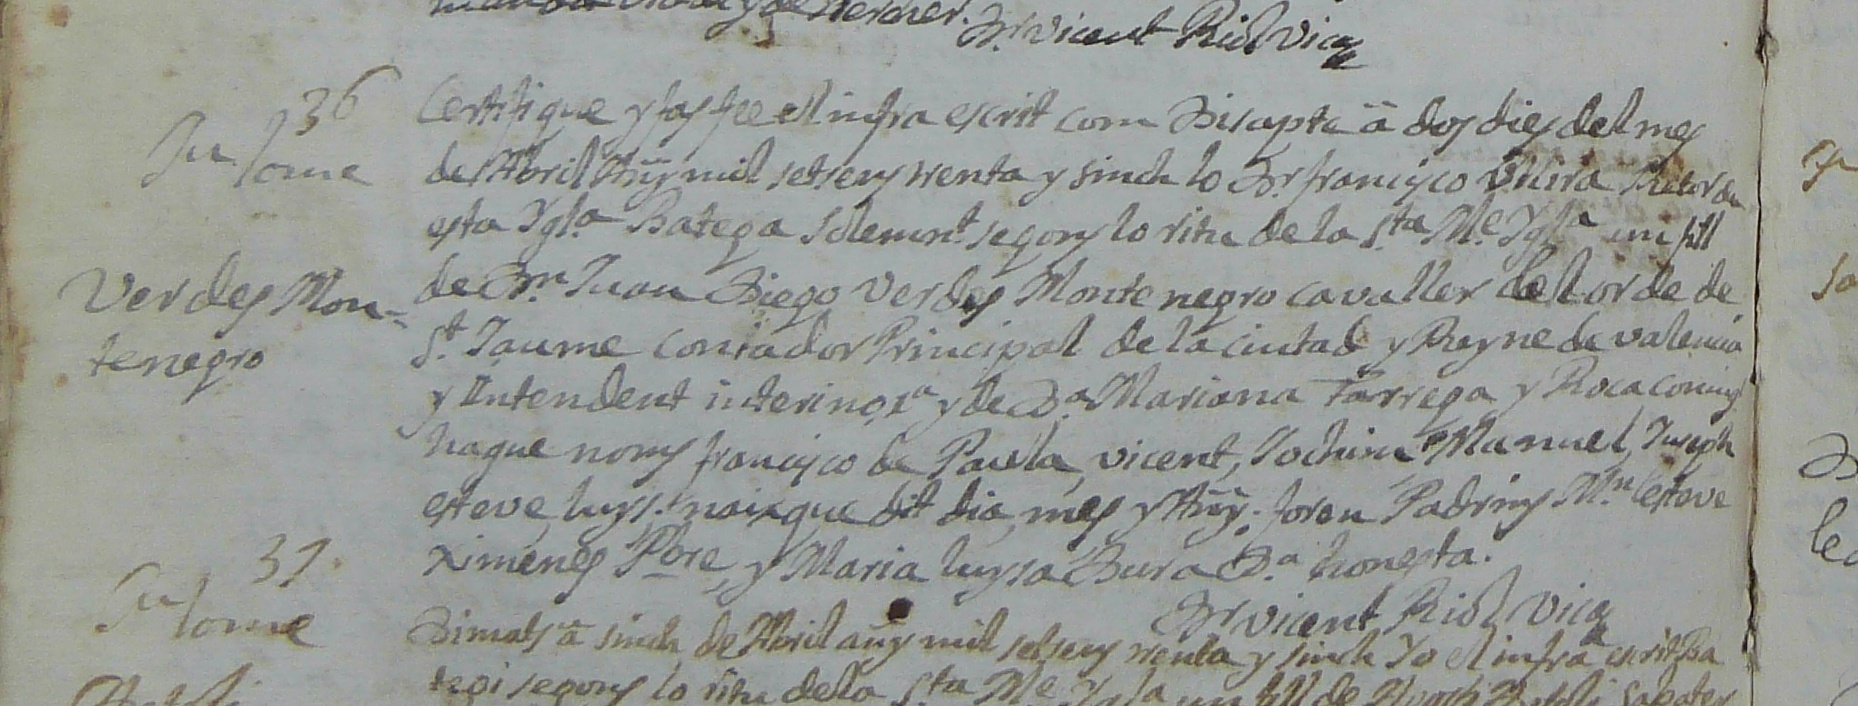 Dr Vicent Riol Vica
36
Certifique y fas fee el infra escrit com Disapte â dos dies del mes
de Abril Añy mil setsens trenta y sinch lo Dr francisco Rector de
esta Ygl.ª Batega solemnt segons lo ritu de la S.ta M.e Ygl.ª un fill
Verdes Mon-
tenegro
de Dn Juan Diego Verdes Montenegro cavaller del orde de
S.t Jaume Contador Principal de la ciutad y Reyne de Valencia
y Intendent interino y de D.ª Mariana Tarrega y Roca
hague noms francisco de Paula, Vicent, Jochim Manuel, Juseph
esteve, luys. naixque dit dia, mes y Añy. foren Padrins Mn esteve
Ximenes Pbre, y Maria luysa Dura D.ª honesta.
Dr Vicent Riol Vica
37.
Dimats â sinch de Abril añy mil setsens trenta y sinch Yo el infra escrit Ba
tegi segons lo ritu de la S.ta M.e Ygl.ª un fill de